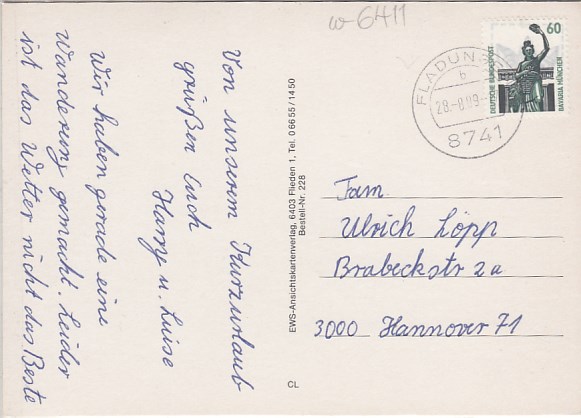 w-6411
Von unserem Kurzurlaub
grüßen Euch
Harry u. Luise
Wir haben gerade eine
Wanderung gemacht. Leider
ist das Wetter nicht das Beste
EWS-Ansichtskartenverlag, 6403 Flieden 1, Tel. 0 66 55 / 14 50
Bestell-Nr. 228
CL
60
DEUTSCHE BUNDESPOST
BAVARIA MÜNCHEN
FLADUNG
b
28.-8.89.-
8741
Fam.
Ulrich Löpp
Brabeckstr 2a
3000 Hannover 71